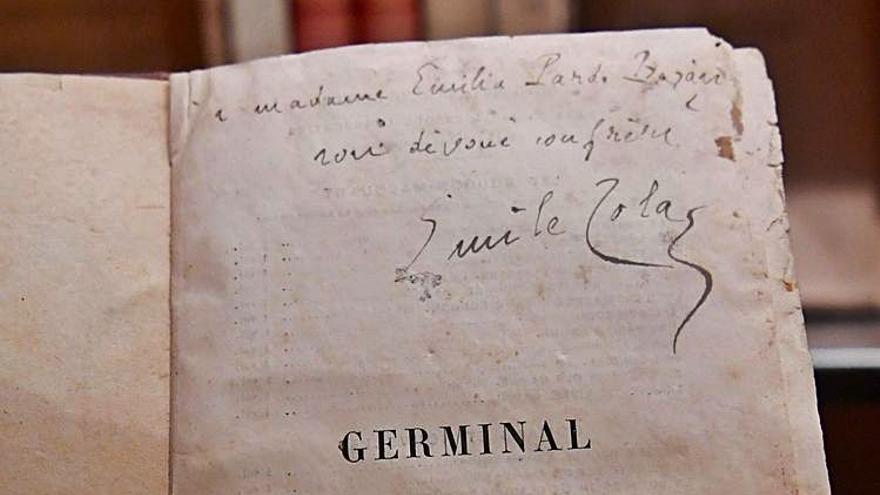 a madame Emilia Pardo Bazán
son dévoué confrère
Emile Zola
GERMINAL